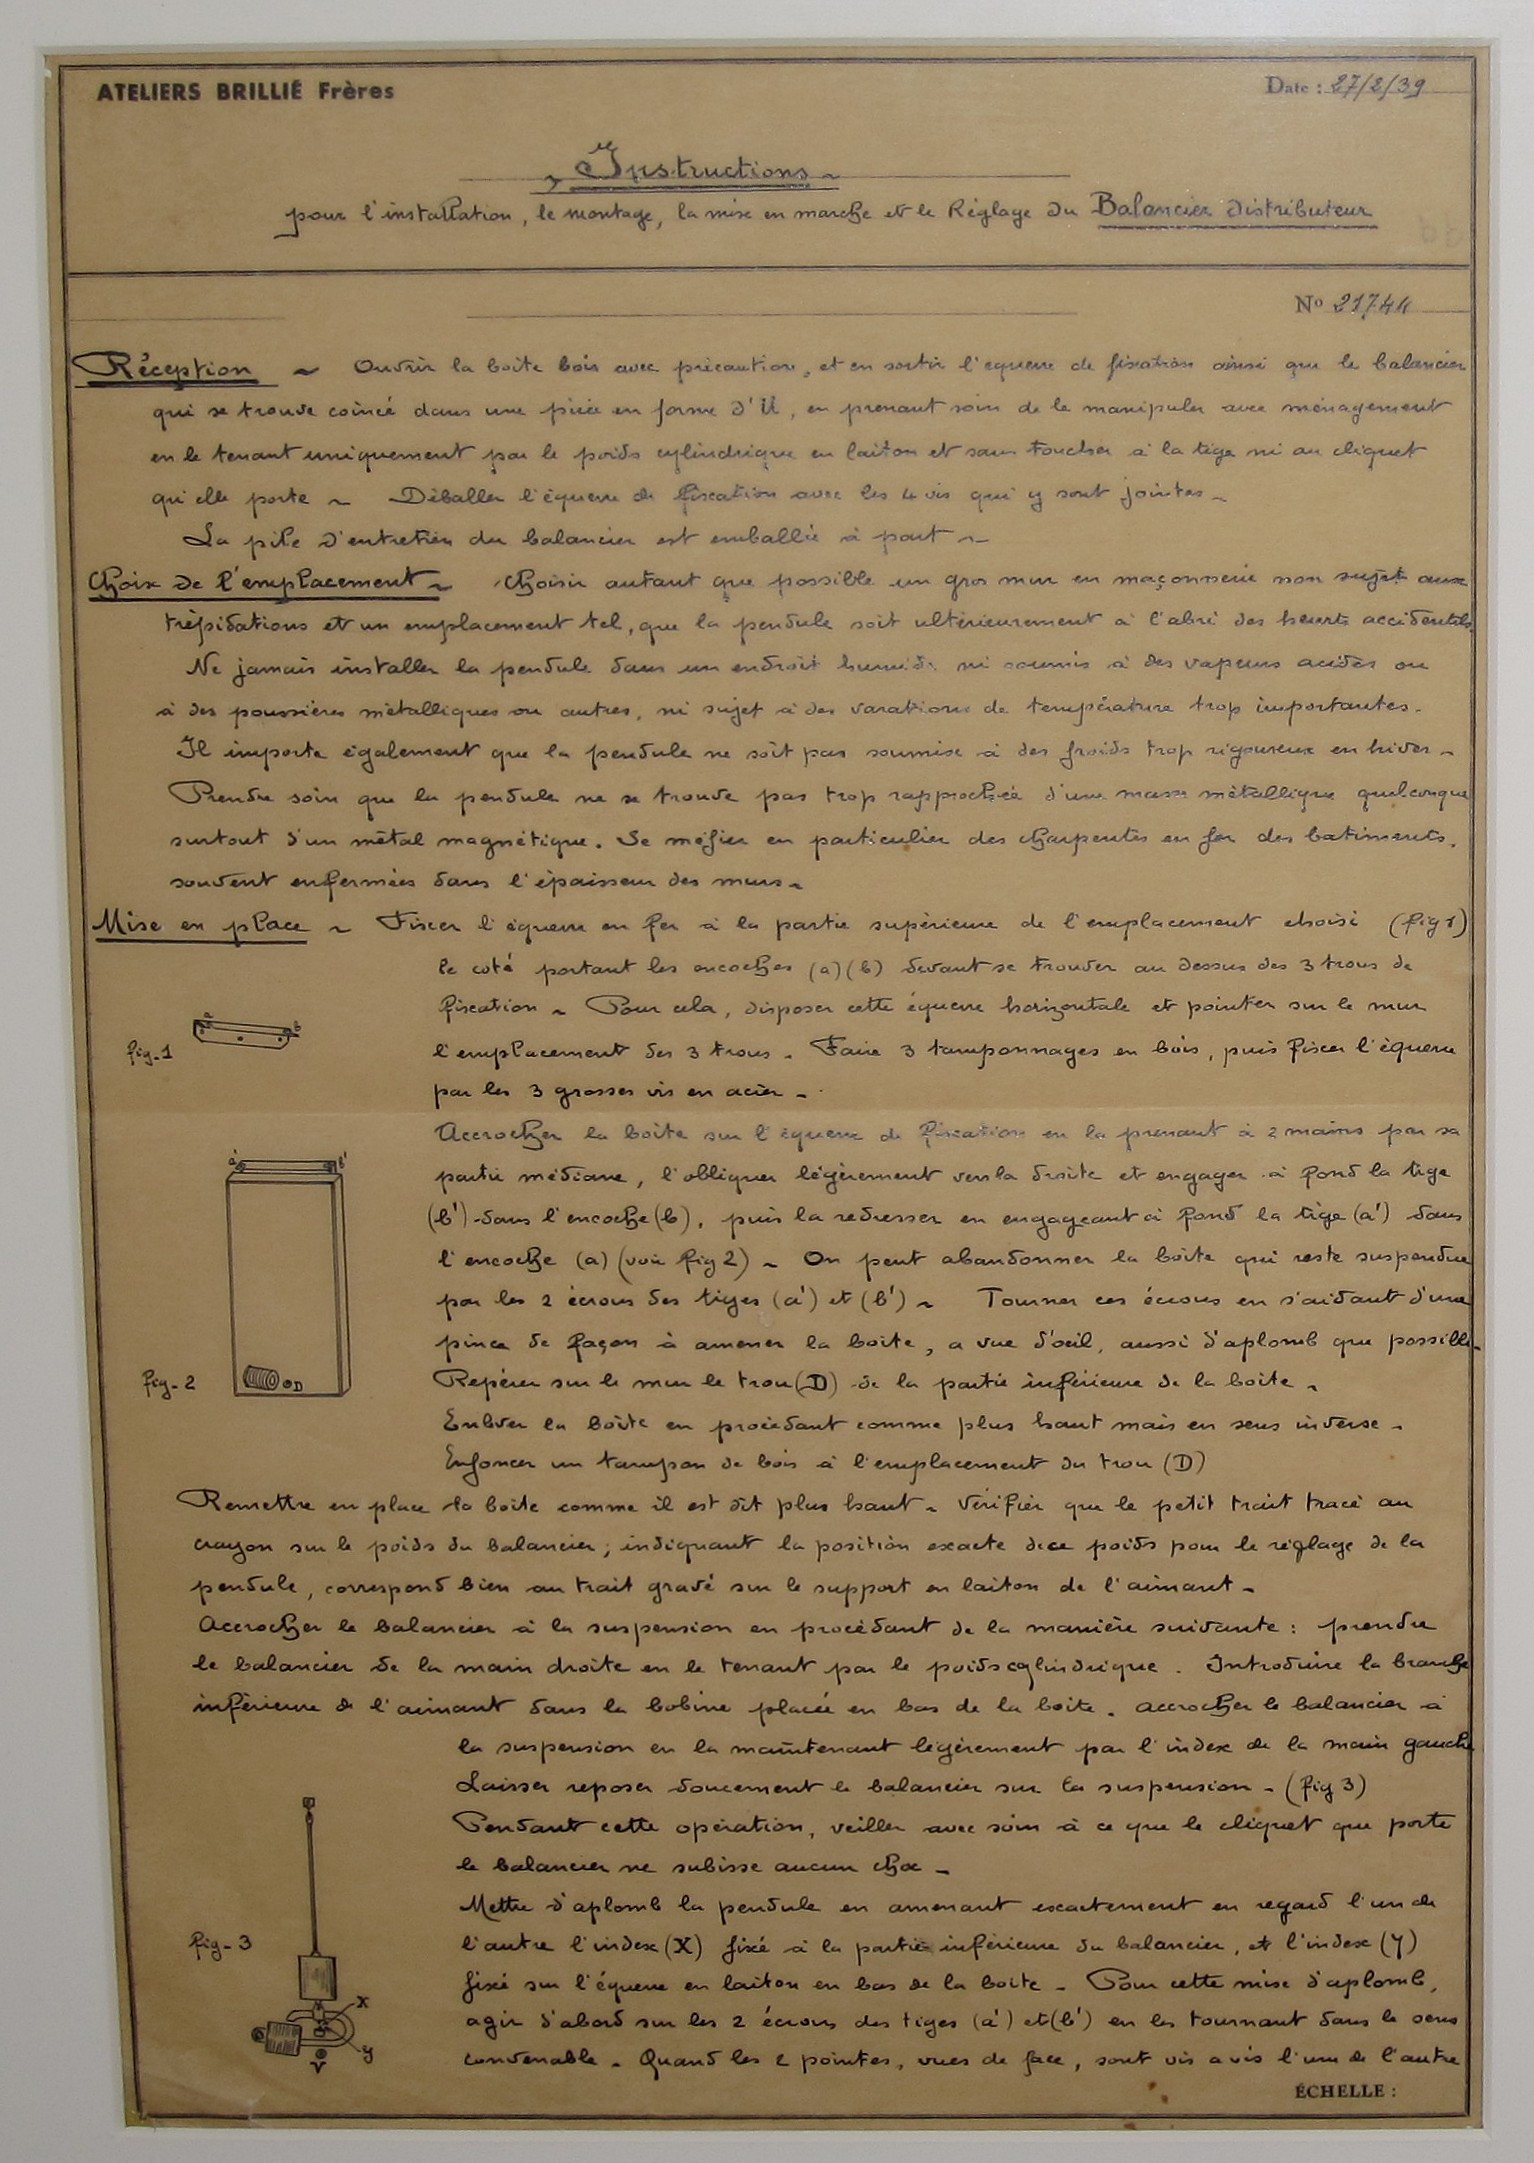 ATELIERS BRILLIÉ Frères
Date : 27/2/39
Instructions
pour l'installation, le montage, la mise en marche et le Réglage du Balancier distributeur
N° 21744
Réception ~ Ouvrir la boite bois avec précaution, et en sortir l'equerre de fixation ainsi que le balancier
qui se trouve coincé dans une pièce en forme d'U, en prenant soin de le manipuler avec ménagement
en le tenant uniquement par le poids cylindrique en laiton et sans toucher à la tige ni au cliquet
qu'elle porte ~ Déballer l'équerre de fixation avec les 4 vis qui y sont jointes ~
La pile d'entretien du balancier est emballée à part ~
Choix de l'emplacement ~ Choisir autant que possible un gros mur en maçonnerie non sujet aux
trépidations et un emplacement tel, que la pendule soit ultérieurement à l'abri des heurts accidentels.
Ne jamais installer la pendule dans un endroit humide ni soumis à des vapeurs acides ou
à des poussières métalliques ou autres, ni sujet à des varations de température trop importantes.
Il importe également que la pendule ne soit pas soumise à des froids trop rigoureux en hiver ~
Prendre soin que la pendule ne se trouve pas trop rapprochée d'une masse métallique quelconque
surtout d'un métal magnétique. Se méfier en particulier des charpentes en fer des batiments,
souvent enfermées dans l'épaisseur des murs ~
Mise en place ~ Fixer l'équerre en fer à la partie supérieure de l'emplacement choisi (fig 1)
le coté portant les encoches (a) (b) devant se trouver au dessus des 3 trous de
fixation ~ Pour cela, disposer cette équerre horizontale et pointer sur le mur
l'emplacement des 3 trous. Faire 3 tamponnages en bois, puis fixer l'équerre
par les 3 grosses vis en acier ~
a b
fig. 1
Accrocher la boîte sur l'équerre de fixation en la prenant à 2 mains par sa
partie médiane, l'obliquer légèrement vers la droite et engager à fond la tige
(b') dans l'encoche (b), puis la redresser en engageant à fond la tige (a') dans
l'encoche (a) (voir fig 2) ~ On peut abandonner la boîte qui reste suspendue
par les 2 écrous des tiges (a') et (b') ~ Tourner ces écrous en s'aidant d'une
pince de façon à amener la boite, a vue d'œil, aussi d'aplomb que possible ~
Repérer sur le mur le trou (D) de la partie inférieure de la boite ~
Enlever la boite en procédant comme plus haut mais en sens inverse ~
Enfoncer un tampon de bois à l'emplacement du trou (D)
a' b'
D
fig. 2
Remettre en place la boite comme il est dit plus haut ~ Vérifier que le petit trait tracé au
crayon sur le poids du balancier, indiquant la position exacte de ce poids pour le réglage de la
pendule, correspond bien au trait gravé sur le support en laiton de l'aimant ~
Accrocher le balancier à la suspension en procédant de la manière suivante : prendre
le balancier de la main droite en le tenant par le poids cylindrique. Introduire la branche
inférieure de l'aimant dans la bobine placée en bas de la boite. Accrocher le balancier à
la suspension en la maintenant légèrement par l'index de la main gauche
Laisser reposer doucement le balancier sur la suspension ~ (fig 3)
Pendant cette opération, veiller avec soin à ce que le cliquet que porte
le balancier ne subisse aucun choc ~
Mettre d'aplomb la pendule en amenant exactement en regard l'un de
l'autre l'index (X) fixé à la partie inférieure du balancier, et l'index (y)
fixé sur l'équerre en laiton en bas de la boite ~ Pour cette mise d'aplomb,
agir d'abord sur les 2 écrous des tiges (a') et (b') en les tournant dans le sens
convenable. Quand les 2 pointes, vues de face, sont vis a vis l'une de l'autre
fig. 3
X
y
V
ÉCHELLE :